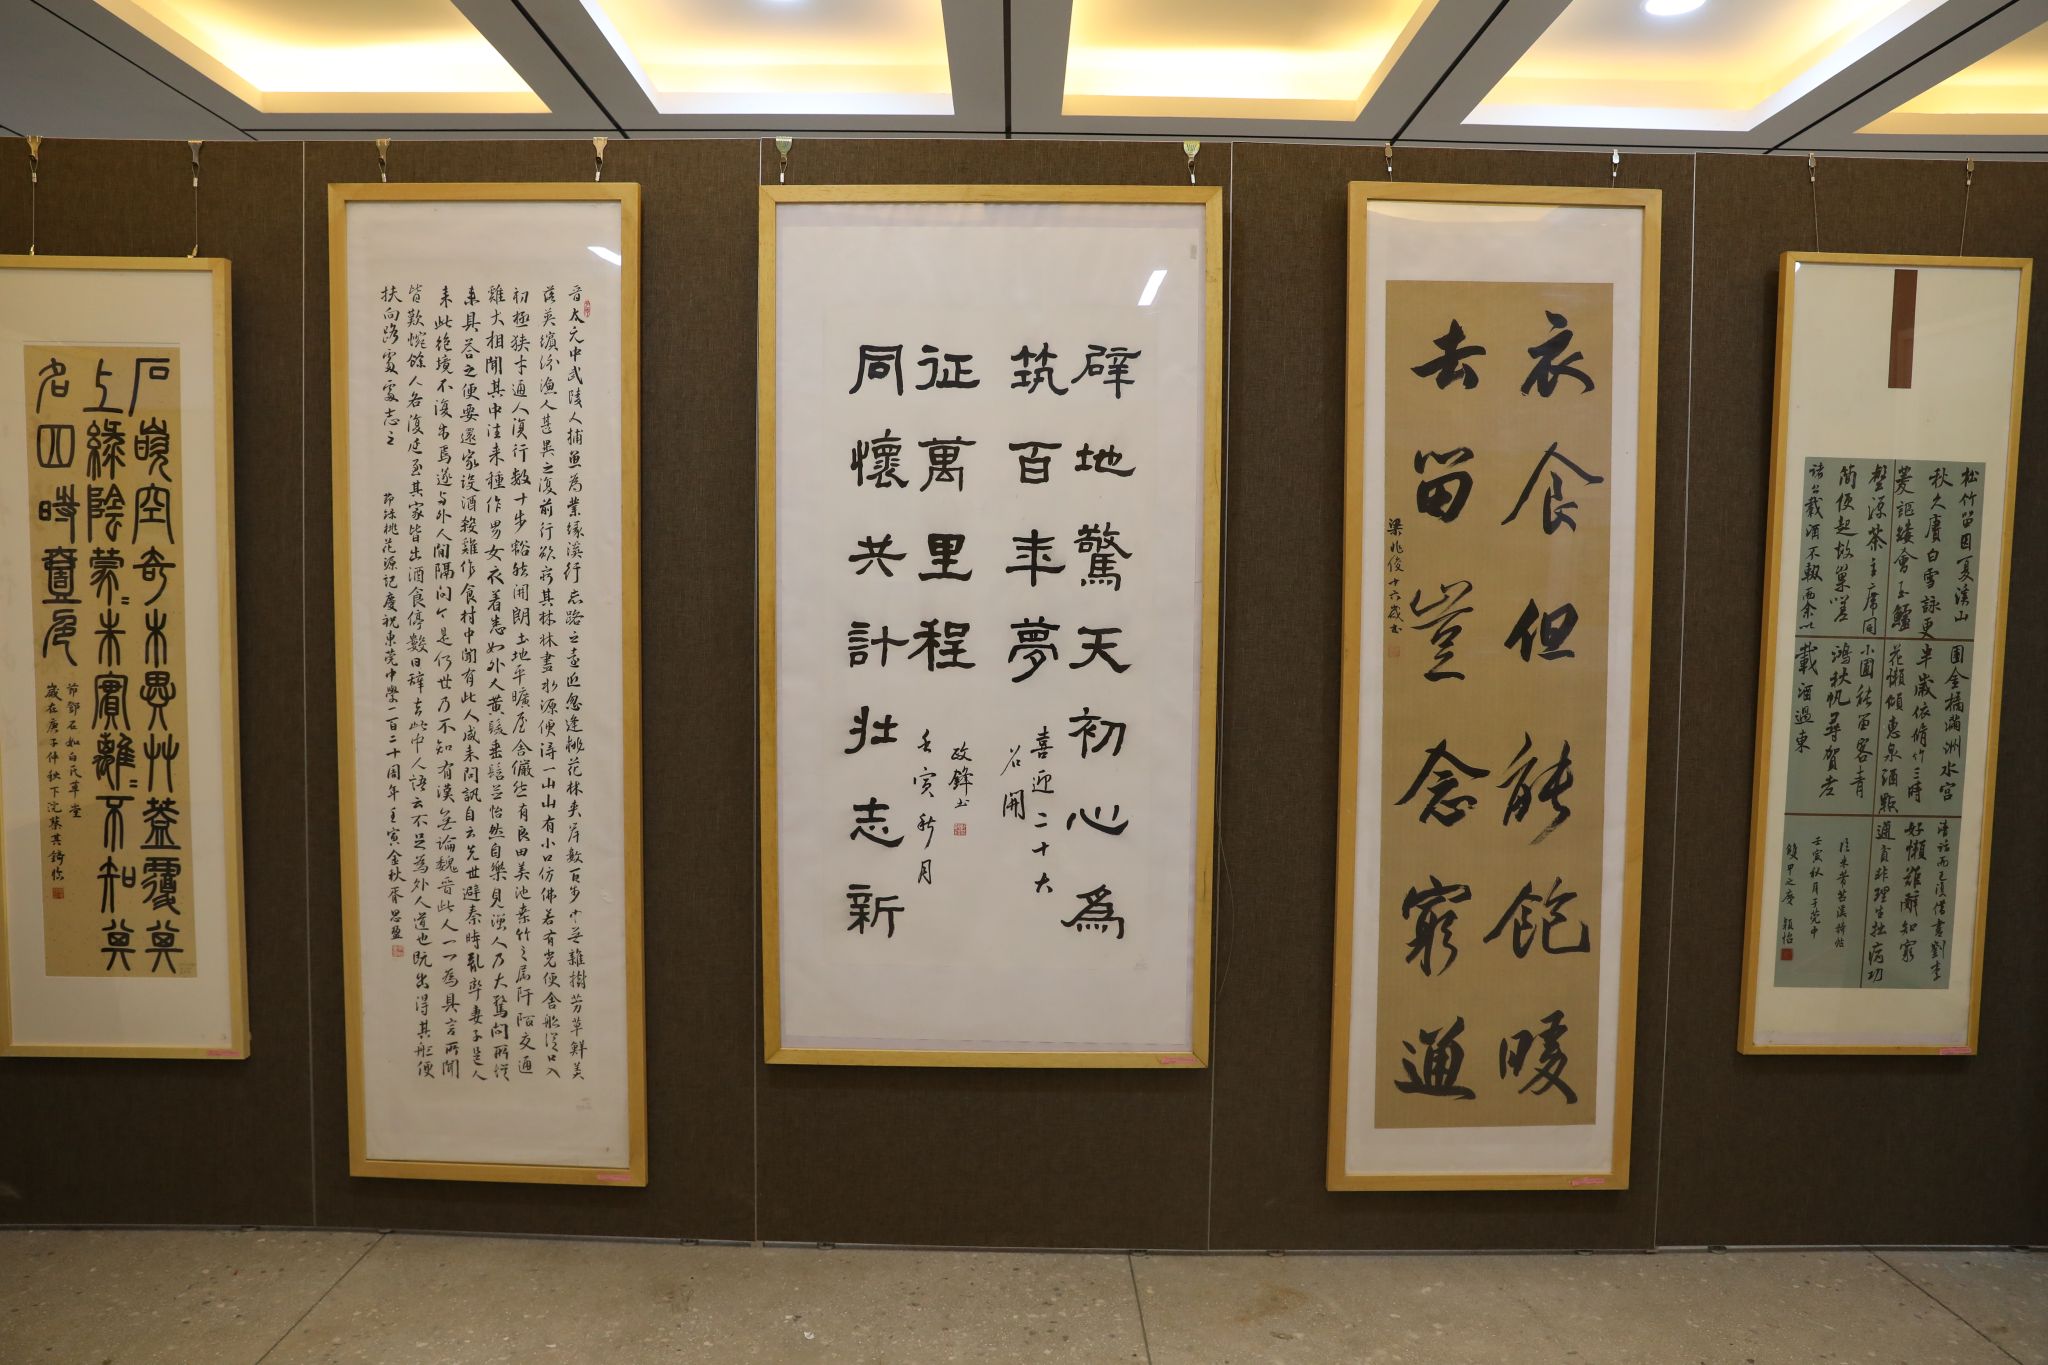 石巉空奇木異艸蓋覆其
上綠陰蒙=朱實離=不知其
名四時壹色
節鄧石如白氏草堂
歲在庚子仲秋下浣
晉太元中武陵人捕魚為業緣溪行忘路之遠近忽逢桃花林夾岸數百步中無雜樹芳草鮮美
落英繽紛漁人甚異之復前行欲窮其林林盡水源便得一山山有小口仿佛若有光便舍船從口入
初極狹才通人復行數十步豁然開朗土地平曠屋舍儼然有良田美池桑竹之屬阡陌交通
雞犬相聞其中往來種作男女衣着悉如外人黃髮垂髫並怡然自樂見漁人乃大驚問所從
來具答之便要還家設酒殺雞作食村中聞有此人咸來問訊自云先世避秦時亂率妻子邑人
來此絕境不復出焉遂與外人間隔問今是何世乃不知有漢無論魏晉此人一一為具言所聞
皆歎惋餘人各復延至其家皆出酒食停數日辭去此中人語云不足為外人道也既出得其船便
扶向路處處志之
節錄桃花源記慶祝東莞中學一百二十周年壬寅金秋 思盈
辟地驚天初心為
筑百年夢
喜迎二十大
召開
征萬里程
政鋒書
壬寅秋月
同懷共計壯志新
衣食但能飽暖
去留豈念窮通
梁兆俊十六歲書
松竹留因夏溪山
秋久賡白雪詠更
菱謳縷會玉鱸
整源茶主席同
簡便起故巢嗟
諸公載酒不輟而余以
團金橘滿洲水宮
半歲依脩竹三時
花懶傾惠泉酒點
小圃能留客青
鴻秋帆尋賀老
載酒過東
諸而已復借書劉李
好懶難辭知窮
通貧非理生拙病功
壬寅秋月于莞中